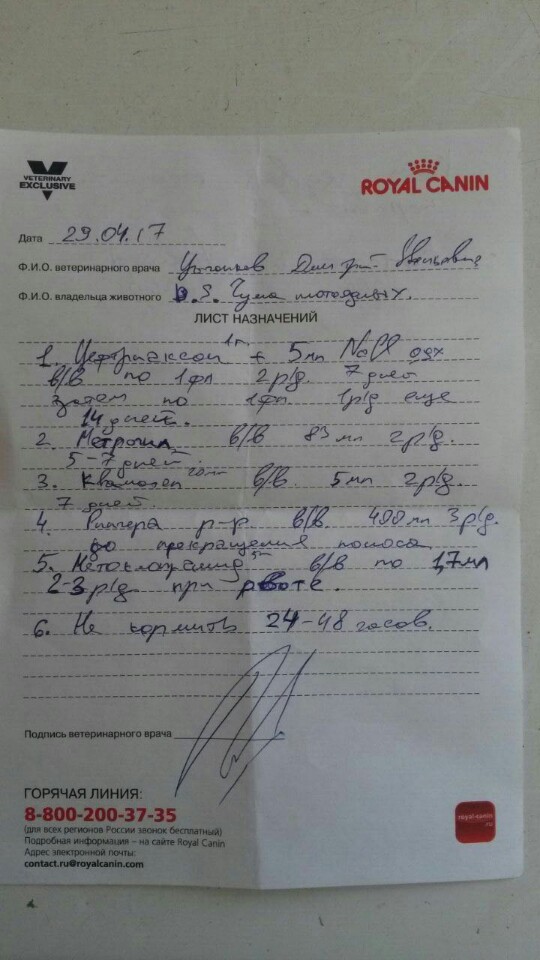 VETERINARY
EXCLUSIVE
ROYAL CANIN
Дата 29.04.17
Ф.И.О. ветеринарного врача Дмитрий
Ф.И.О. владельца животного D.S. Чума плотоядных.
ЛИСТ НАЗНАЧЕНИЙ
1. Цефтриаксон 1г. + 5мл NaCl
в/в по 1фл 2р/д. 7 дней
затем по 1фл 1р/д еще
14 дней.
2. Метрогил в/в 83 мл 2р/д.
5-7 дней
3. Квамател в/в 5мл 2р/д.
7 дней.
4. Рингера р-р в/в. 400мл 3р/д.
до прекращения поноса
5. Метоклопрамид в/в по 1,7мл
2-3р/д при рвоте.
6. Не кормить 24-48 часов.
Подпись ветеринарного врача
ГОРЯЧАЯ ЛИНИЯ:
8-800-200-37-35
(для всех регионов России звонок бесплатный)
Подробная информация – на сайте Royal Canin
Адрес электронной почты:
contact.ru@royalcanin.com
royal-canin
.ru